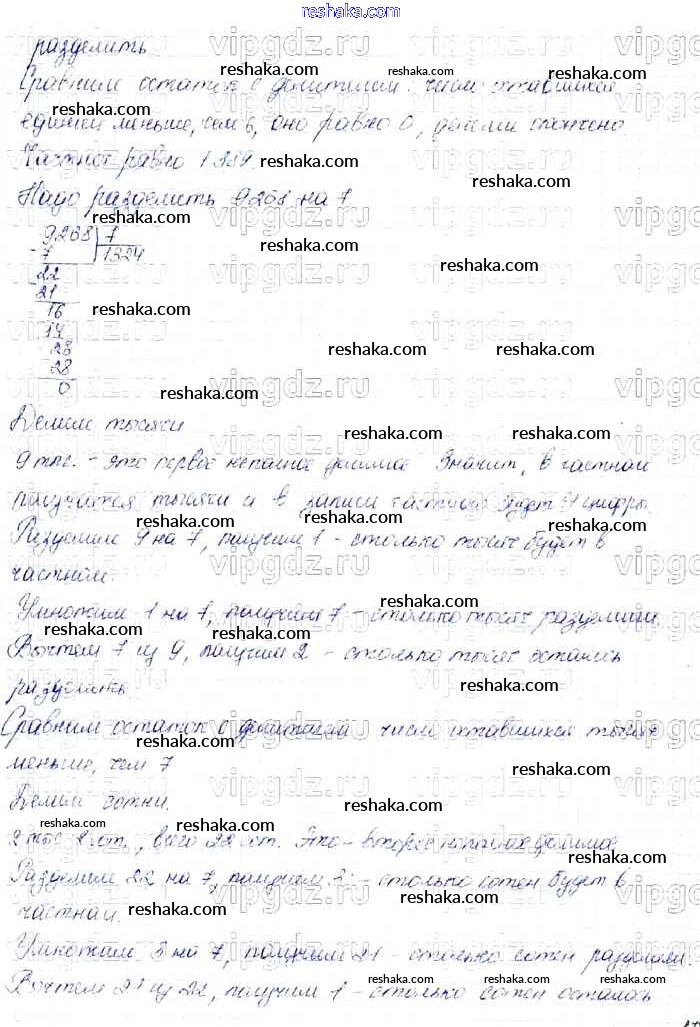 reshaka.com
разделить.
Сравним остаток с делителем: число оставшихся
единиц меньше, чем 6, оно равно 0, деление окончено.
Частное равно 1389.
Надо разделить 9268 на 7
9268 7
- 7 1324
22
- 21
16
14
28
28
0
Делим тысячи
9 тыс. - это первое неполное делимое. Значит, в частном
получатся тысячи и в записи частного будет 4 цифры.
Разделим 9 на 7, получим 1 - столько тысяч будет в
частном.
Умножим 1 на 7, получим 7 - столько тысяч разделили
Вычтем 7 из 9, получим 2 - столько тысяч осталось
разделить.
Сравним остаток с делителем число оставшихся тысяч
меньше, чем 7
Делим сотни.
2 тыс 2 сот., всего 22 сот. Это - второе неполное делимое
Разделим 22 на 7, получим 3 - столько сотен будет в
частном.
Умножим 3 на 7, получим 21 - столько сотен разделили.
Вычтем 21 из 22, получим 1 - столько сотен осталось